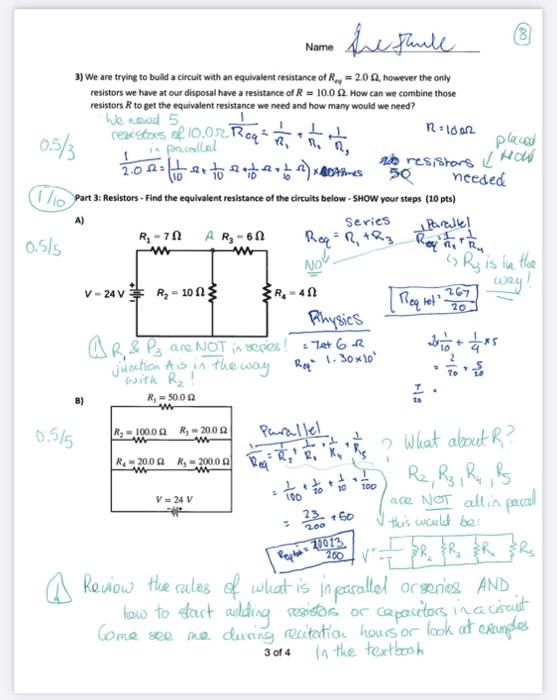 Name
8
3) We are trying to build a circuit with an equivalent resistance of Req = 2.0 Ω, however the only
resistors we have at our disposal have a resistance of R = 10.0 Ω. How can we combine those
resistors R to get the equivalent resistance we need and how many would we need?
We need 5
resistors of 10.0Ω
in parallel
0.5/3
1/Req = 1/R1 + 1/R2 + 1/R3
R = 10Ω
placed
HOW
resistors
50 needed
1/10
Part 3: Resistors - Find the equivalent resistance of the circuits below - SHOW your steps (10 pts)
A)
0.5/5
R1 = 7 Ω A R3 = 6 Ω
V = 24 V R2 = 10 Ω R4 = 4 Ω
Series
Req = R1 + R3
NO
Parallel
R3 is in the
way!
Req tot = 267/20
Physics
= 7 + 6 Ω
Req = 1.30 x 10¹
1/10 + 1/4 x 5
= 2/20 + 5/20
7/20
R1 & R3 are NOT in series!
junction A is in the way
with R2!
B)
0.5/5
R1 = 50.0 Ω
R2 = 100.0 Ω R3 = 20.0 Ω
R4 = 20.0 Ω R5 = 200.0 Ω
V = 24 V
Parallel
= 23/200 + 50
= 10023/200
? What about R1?
R2, R3, R4, R5
are NOT all in parallel
this would be:
V R2 R3 R4 R5
Review the rules of what is in parallel or series AND
how to start adding resistors or capacitors in a circuit
Come see me during recitation hours or look at examples
in the textbook
3 of 4